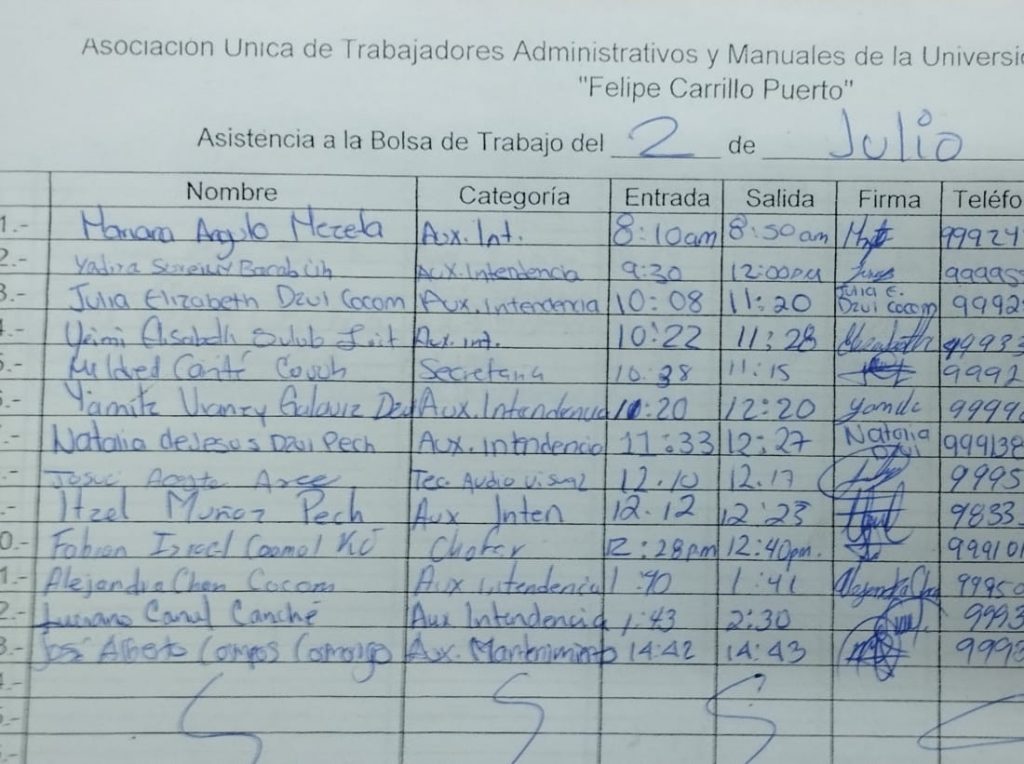 Asociación Única de Trabajadores Administrativos y Manuales de la Universi
"Felipe Carrillo Puerto"
Asistencia a la Bolsa de Trabajo del 2 de Julio
Nombre Categoría Entrada Salida Firma Teléfo
1.- Mariana Angulo Mezeta Aux. Int. 8:10am 8:50am 99924
2.- Yadira Aux. Intendencia 9:30 12:00pm 99995
3.- Julia Elizabeth Dzul Cocom Aux. Intendencia 10:08 11:20 Julia E. Dzul Cocom 9992
.- Yeimi Elisabeth Sulub Aux. int. 10:22 11:28 Elizabeth 99933
5.- Mildred Canté Couoh Secretaria 10:38 11:15 9992
.- Yamile Galaviz Dzul Aux. Intendencia 10:20 12:20 Yamile 9999
.- Natalia de Jesus Dzul Pech Aux. Intendencia 11:33 12:27 Natalia Dzul 999138
.- Josue Arce Tec. Audio visual 12.10 12.17 9995
.- Itzel Muñoz Pech Aux Inten 12.12 12:23 9833
0.- Fabian Israel Caamal Kú Chofer 12:28pm 12:40pm. 999101
1.- Alejandra Chan Cocom Aux intendencia 1:40 1:41 9995
2.- Luciano Canul Canché Aux Intendencia 1:43 2:30 9993
3.- José Alberto Campos Camargo Aux. Mantenimiento 14:42 14:43 9993
.-
5.-
.-